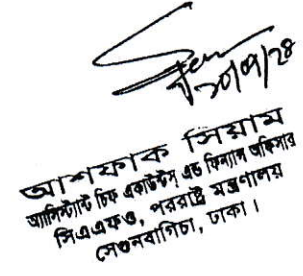 ২০/০৭/২৪
আশফাক সিয়াম
অ্যাসিস্ট্যান্ট চিফ একাউন্টস্ এন্ড ফিন্যান্স অফিসার
সিএএফও, পররাষ্ট্র মন্ত্রণালয়
সেগুনবাগিচা, ঢাকা।